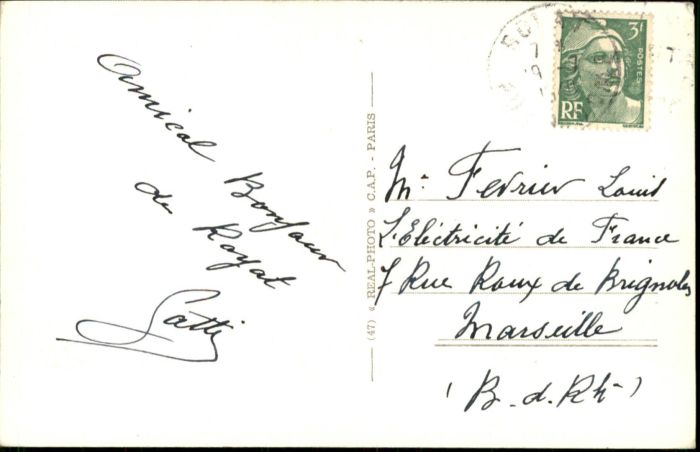 Amical Bonjour
de Royat
(47) « REAL-PHOTO » C.A.P. - PARIS
3F
POSTES
RF
Mr Fevrier Louis
L'Eléctricité de France
7 Rue Roux de Brignoles
Marseille
(B. d. Rh-)